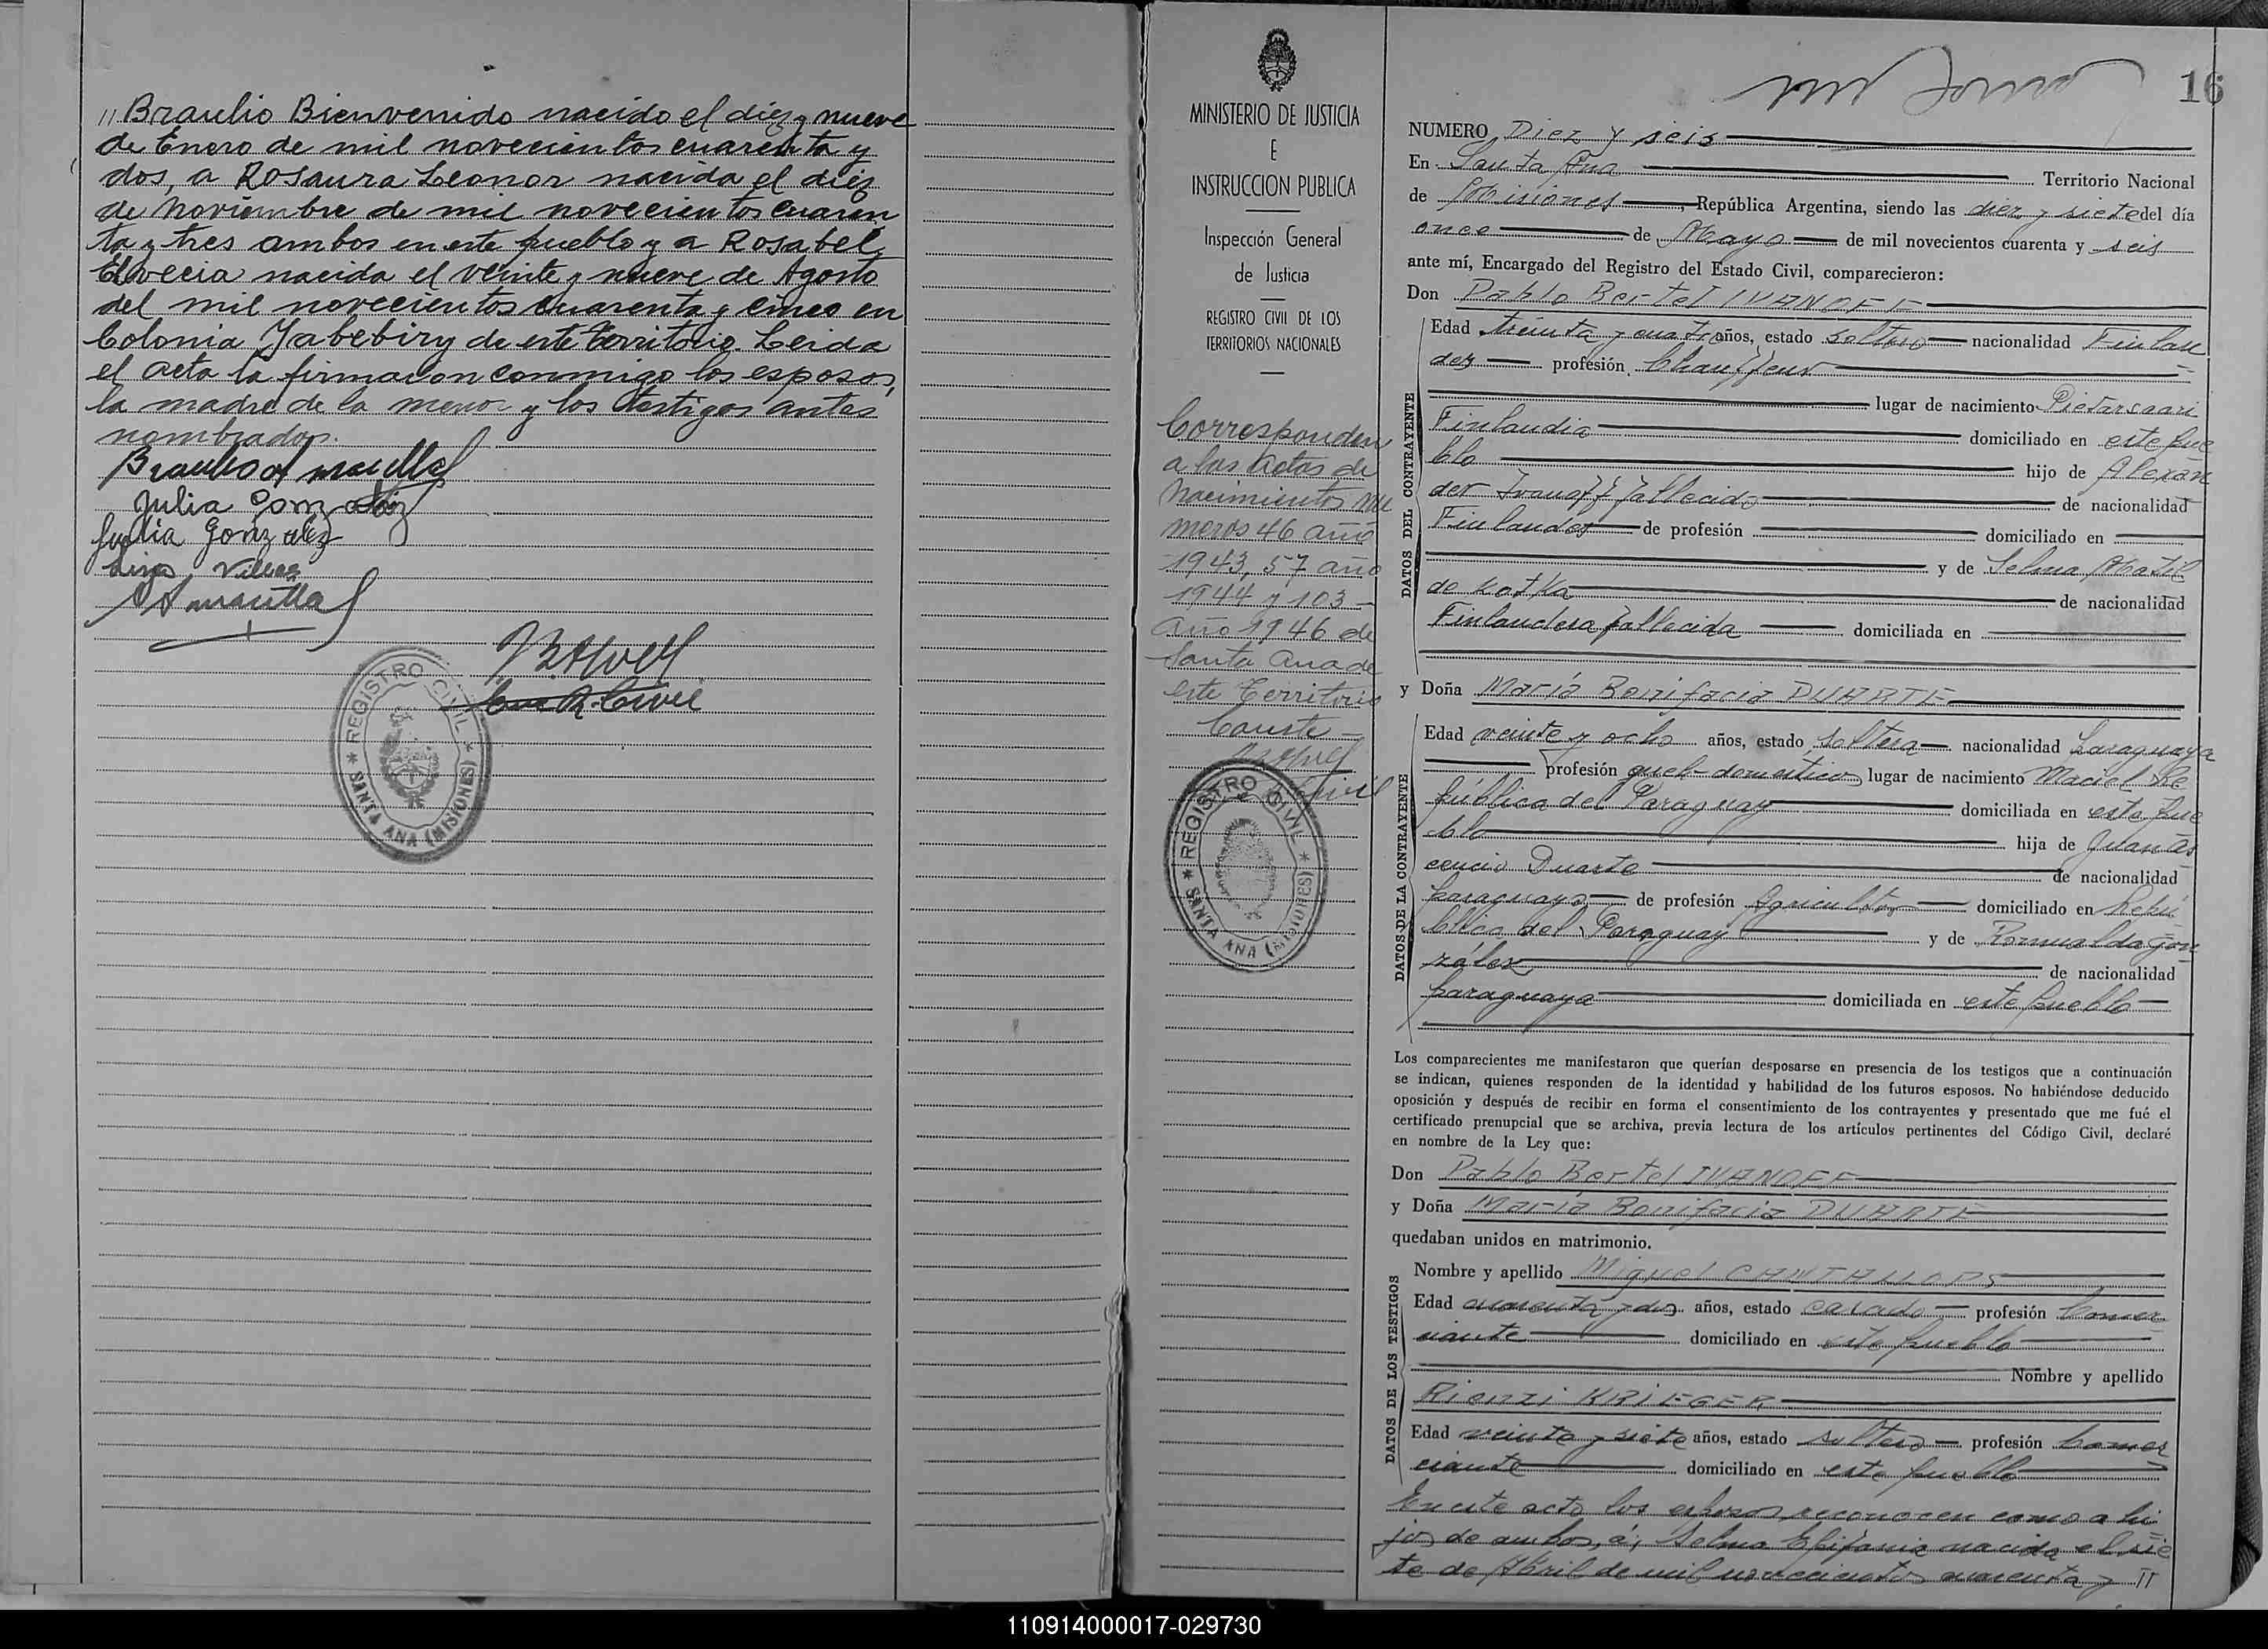 " Braulio Bienvenido nacido el diez y nueve
de Enero de mil novecientos cuarenta y
dos, a Rosaura Leonor nacida el diez
de Noviembre de mil novecientos cuaren
ta y tres ambos en este pueblo y a Rosabel
Elvecia nacida el veinte y nueve de Agosto
del mil novecientos cuarenta y cinco en
Colonia Yabebiry de este territorio. Leida
el acta la firmaron conmigo los esposos,
la madre de la menor y los testigos antes
nombrados.
Julia Gonzalez
Julia Gonzalez
REGISTRO CIVIL
* SANTA ANA (MISIONES) *
MINISTERIO DE JUSTICIA
E
INSTRUCCION PUBLICA
Inspección General
de Justicia
REGISTRO CIVIL DE LOS
TERRITORIOS NACIONALES
Corresponden
a las Actas de
Nacimientos nu
meros 46 año
1943, 57 año
1944 y 103 -
año 1946 de
Santa Ana de
este Territorio
Conste -
REGISTRO CIVIL
* SANTA ANA (MISIONES) *
16
NUMERO Diez y seis
En Santa Ana Territorio Nacional
de Misiones, República Argentina, siendo las diez y siete del día
once de Mayo de mil novecientos cuarenta y seis
ante mí, Encargado del Registro del Estado Civil, comparecieron:
Don Pablo Bertel IVANOFF
DATOS DEL CONTRAYENTE
Edad treinta y cuatro años, estado soltero nacionalidad Finlan
des profesión Chauffeur
lugar de nacimiento Pietarsaari
Finlandia domiciliado en este pue
blo hijo de Alexan
der Ivanoff fallecido de nacionalidad
Finlandes de profesión domiciliado en
y de Selma Matil
de Kotka de nacionalidad
Finlandesa fallecida domiciliada en
y Doña María Bonifacia DUARTE
DATOS DE LA CONTRAYENTE
Edad veinte y ocho años, estado soltera nacionalidad Paraguaya
profesión queh-domesticos lugar de nacimiento Maciel Re
pública del Paraguay domiciliada en este pue
blo hija de Juan As
cencio Duarte de nacionalidad
paraguayo de profesión Agricultor domiciliado en Repú
blica del Paraguay y de Romualda Gon
zález de nacionalidad
paraguaya domiciliada en este pueblo
Los comparecientes me manifestaron que querían desposarse en presencia de los testigos que a continuación
se indican, quienes responden de la identidad y habilidad de los futuros esposos. No habiéndose deducido
oposición y después de recibir en forma el consentimiento de los contrayentes y presentado que me fué el
certificado prenupcial que se archiva, previa lectura de los artículos pertinentes del Código Civil, declaré
en nombre de la Ley que:
Don Pablo Bertel IVANOFF
y Doña María Bonifacia DUARTE
quedaban unidos en matrimonio.
DATOS DE LOS TESTIGOS
Nombre y apellido Miguel CANTALLOPS
Edad cuarenta y dos años, estado casado profesión Comer
ciante domiciliado en este pueblo
Nombre y apellido
Rienzi KRIEGER
Edad veinte y siete años, estado soltero profesión Comer
ciante domiciliado en este pueblo
En este acto los esposos reconocen como a hi
jos de ambos, á; Selma Epifania nacida el sie
te de Abril de mil novecientos cuarenta y "
110914000017-029730